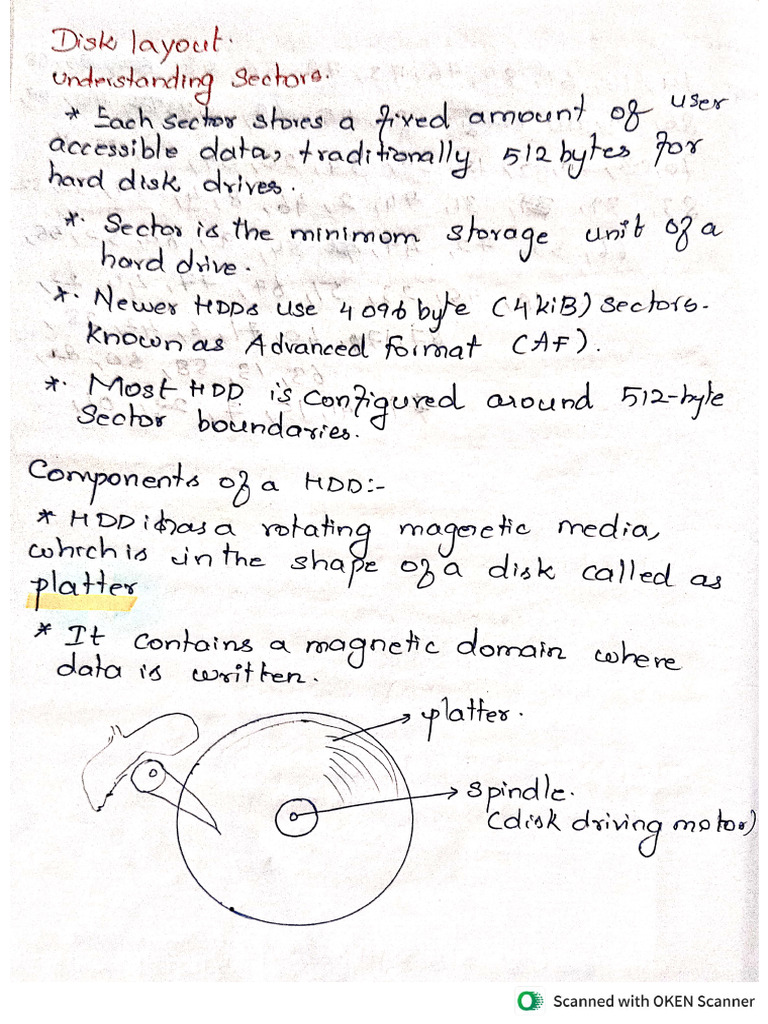 Disk layout:
Understanding Sectors.
* Each sector stores a fixed amount of user
accessible data, traditionally 512 bytes for
hard disk drives.
*. Sector is the minimom storage unit of a
hard drive.
*. Newer HDDs use 4096 byte (4KiB) sectors.
Known as Advanced format (AF).
*. Most HDD is configured around 512-byte
Sector boundaries.
Components of a HDD:-
* HDD has a rotating magnetic media,
which is in the shape of a disk called as
platter
* It contains a magnetic domain where
data is written.
platter.
Spindle.
(disk driving motor)
Scanned with OKEN Scanner